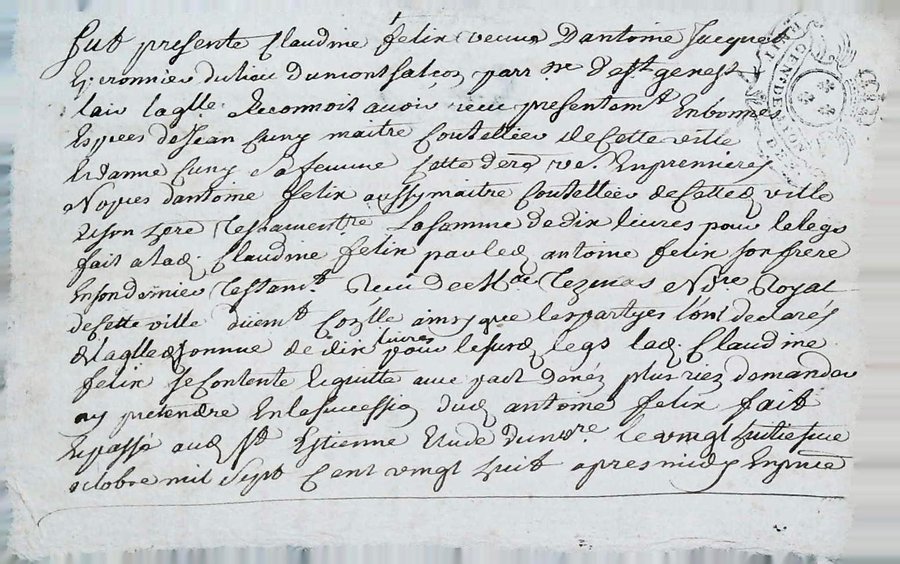 fut presente Claudine felix veuve Dantoine Jacquet
vigeronnier du lieu dumontsalcon parr sse dest genest
laquelle Reconnoit avoir receu presentemt En bonnes
Especes de Jean Cuny maitre Coutellier de Cette ville
Et danne Cuny sa femme Cette derre ve. En premieres
Nopces dantoine felix aussy maitre Coutellier de Cette d ville
Et son here Testamentre La somme de dix livres pour le legs
fait a lad. Claudine felix par led antoine felix son frere
En son dernier Testamt Receu de Me Tezenas Nore Royal
de Cette ville duemt Corlle ainsy que les partyes L'ont declares
de laqlle somme de dix livres pour le susd legs lad. Claudine
felix se Contente Et quitte avec pact den plus rien demander
ny pretendre En la succession dud antoine felix fait
Et passé aud St Estienne Etude du nore. le vingt huitieme
octobre mil sept Cent vingt huit apres midy En pnce